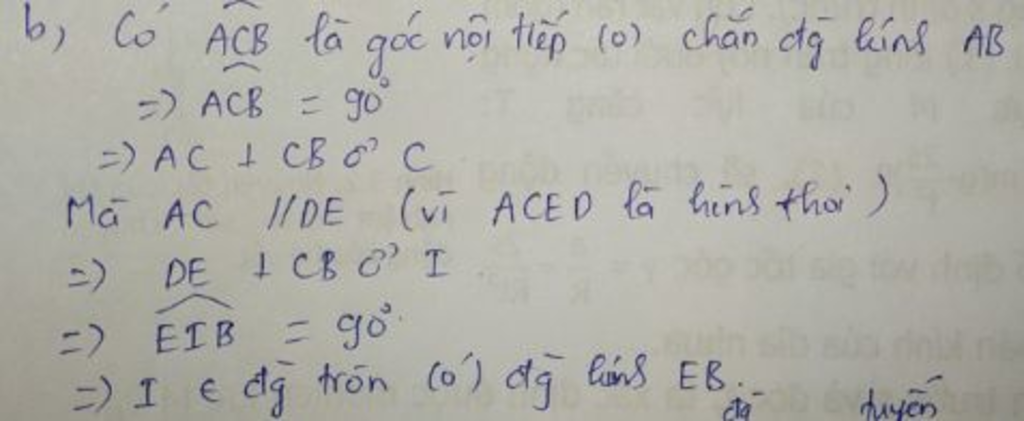 b, Có ACB là góc nội tiếp (O) chắn đg kính AB
=> ACB = 90°
=> AC ⊥ CB ở C
Mà AC // DE (vì ACED là hình thoi)
=> DE ⊥ CB ở I
=> EIB = 90°
=> I ∈ đg tròn (O') đg kính EB.
đg tuyến